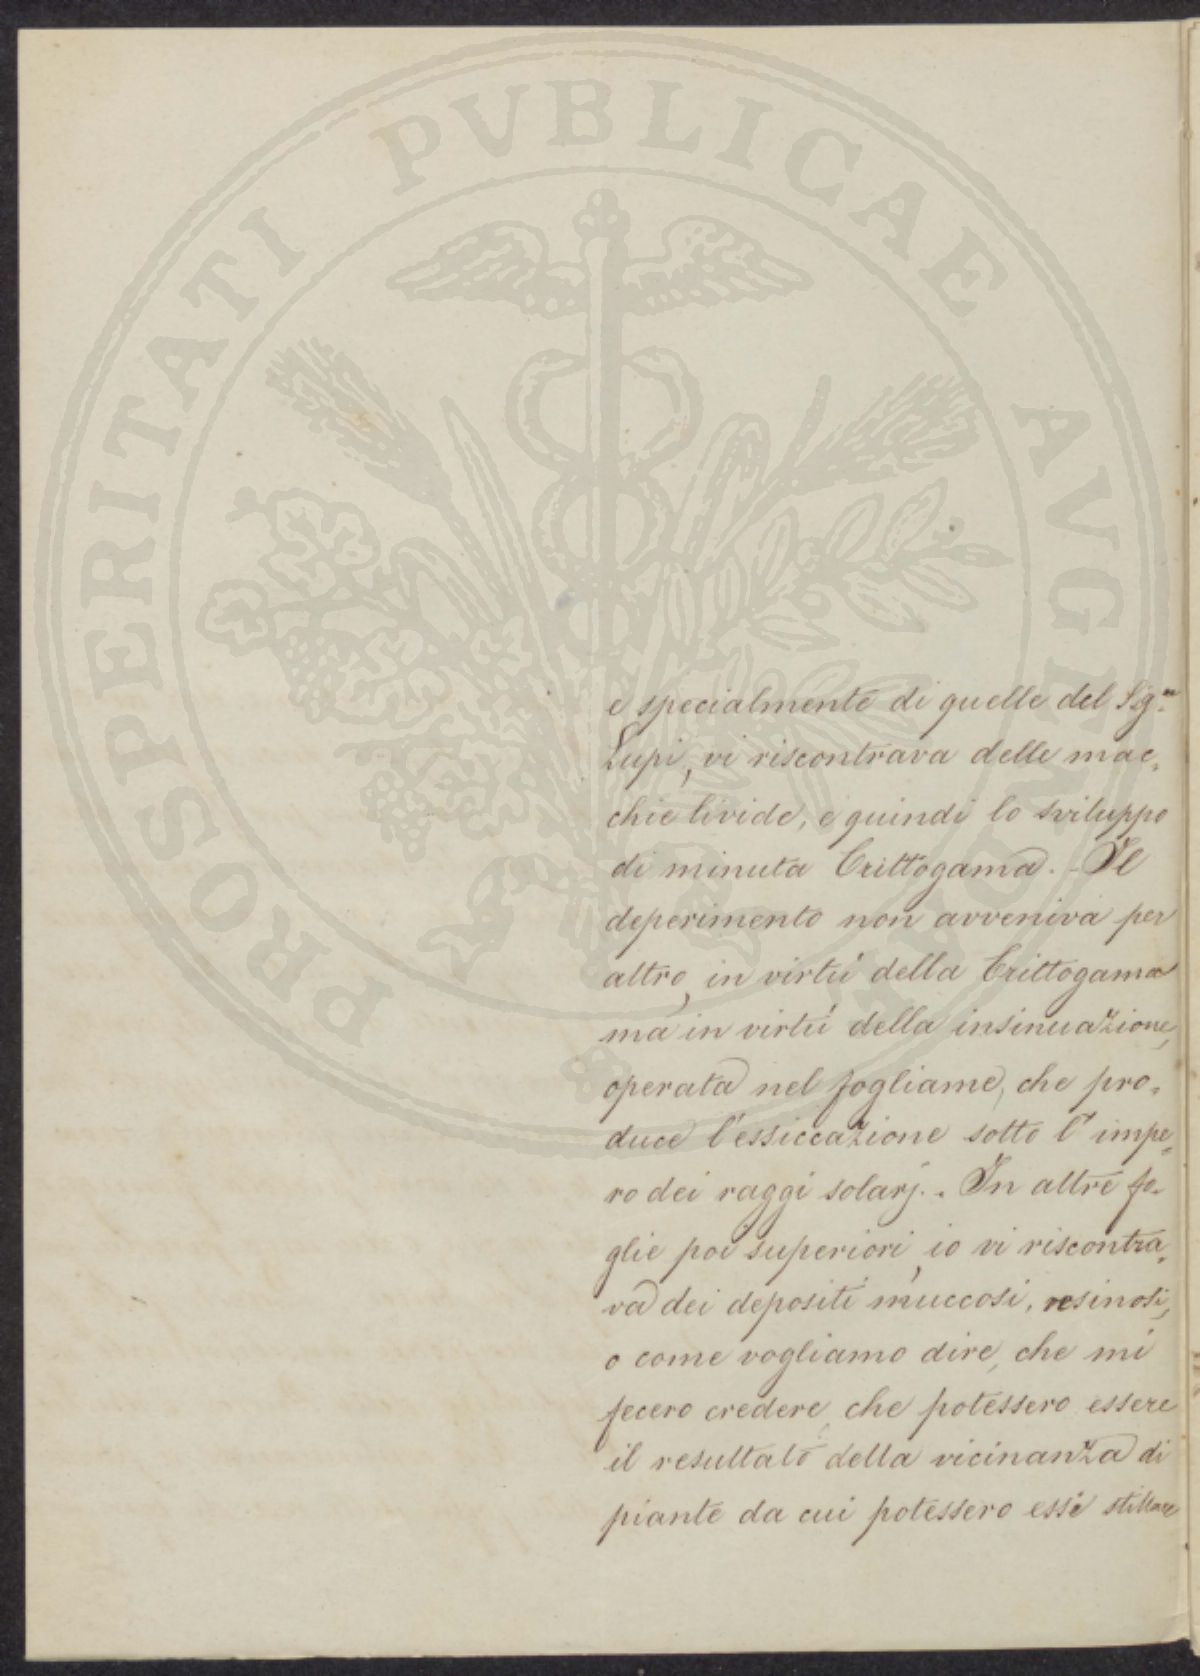 PROSPERITATI PUBLICAE AVGENDAE
e specialmente di quelle del Sig.re
Lupi, vi riscontrava delle mac„
chie livide, e quindi lo sviluppo
di minuta Crittogama. - Il
deperimento non avveniva per
altro, in virtù della Crittogama
ma in virtù della insinuazione,
operata nel fogliame, che pro„
duce l'essiccazione sotto l'impe„
ro dei raggi solarj. - In altre fo„
glie poi superiori, io vi riscontra„
va dei depositi muccosi, resinosi,
o come vogliamo dire, che mi
fecero credere, che potessero essere
il resultato della vicinanza di
piante da cui potessero essi stillare